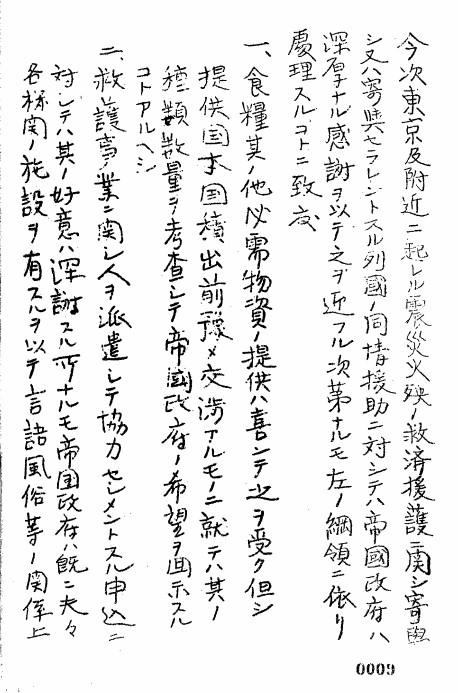 今次東京及附近ニ起レル震災火殃ノ救済援護ニ関シ寄與
シ又ハ寄與セラレントスル列國ノ同情援助ニ対シテハ帝國政府ハ
深厚ナル感謝ヲ以テ之ヲ迎フル次第ナルモ左ノ綱領ニ依リ
處理スルコトニ致度
一、食糧其ノ他必需物資ノ提供ハ喜ンテ之ヲ受ク但シ
提供国本国積出前豫メ交渉アルモノニ就テハ其ノ
種類数量ヲ考査シテ帝國政府ノ希望ヲ回示スル
コトアルヘシ
二、救護事業ニ関シ人ヲ派遣シテ協力セシメントスル申込ニ
対シテハ其ノ好意ハ深謝スル所ナルモ帝国政府ハ既ニ夫々
各様関ノ施設ヲ有スルヲ以テ言語風俗等ノ関係上
0009